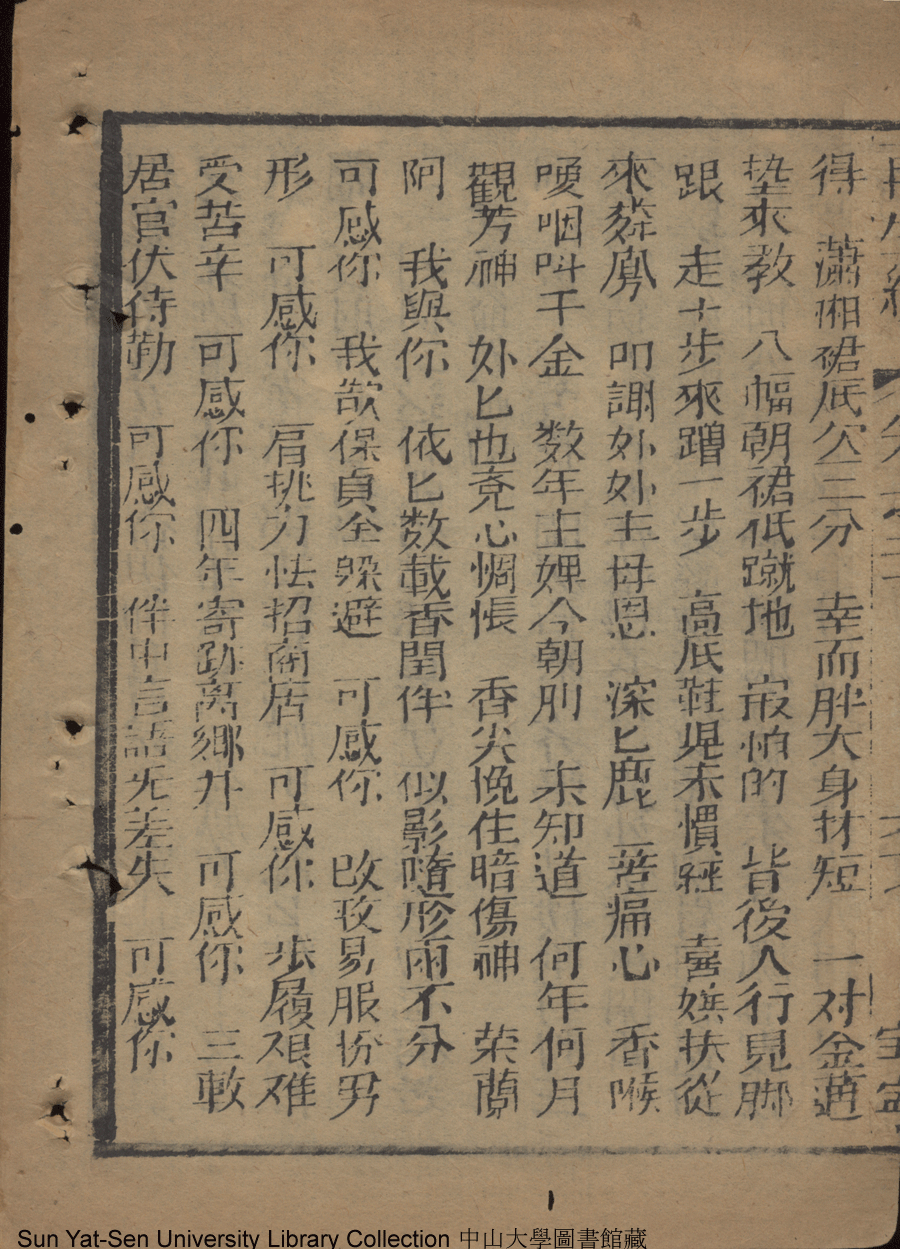 再生緣
得　瀟湘裙底欠三分　幸而胖大身材短　一对金蓮
垫來教　八幅朝裙低蹴地　㝡怕的　背後人行見脚
跟　走十步來蹭一步　高底鞋児未慣経　喜嫔扶從
來彂鳯　叩謝外外主母恩　深匕鹿　苦痛心　香喉
哽咽呌千金　数年主婢今朝別　未知道　何年何月
觀芳神　外匕也竟心惆悵　香尖挽住暗傷神　荣蘭
阿　我與你　依匕数載香閨伴　似影隨形兩不分
可感你　我欲保貞全躲避　可感你　改𡚱易服扮男
形　可感你　肩挑力怯招商店　可感你　步履艰难
受苦辛　可感你　四年寄跡离鄉井　可感你　三載
居官伏待勤　可感你　伴中言語无差失　可感你
Sun Yat-Sen University Library Collection 中山大學圖書館藏